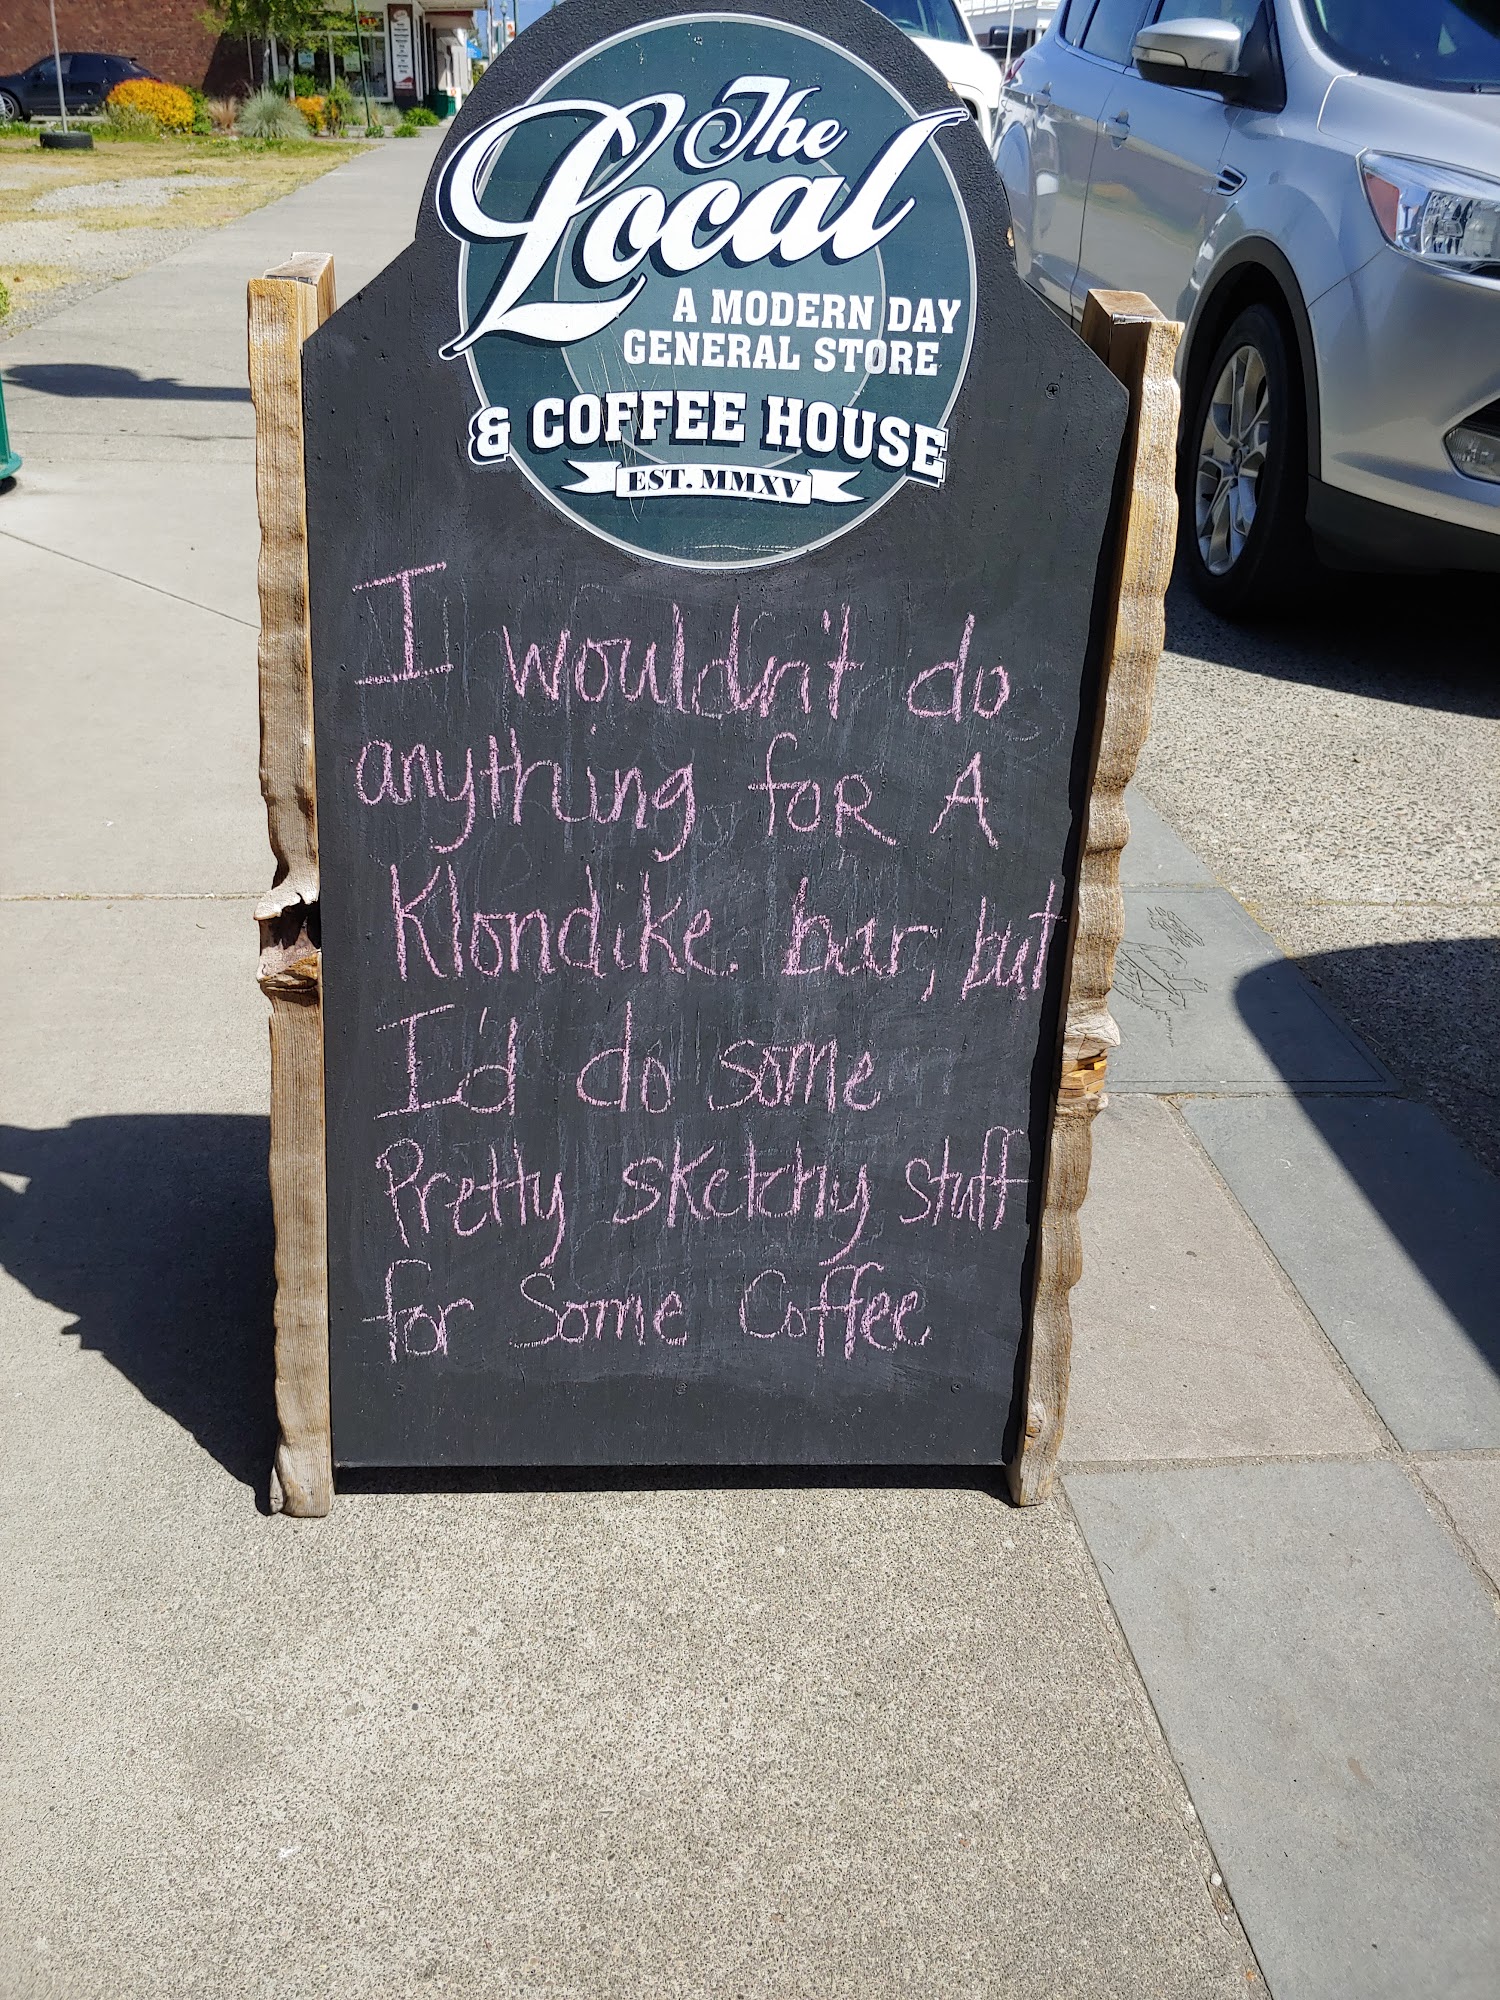 The
Local
A MODERN DAY
GENERAL STORE
& COFFEE HOUSE
EST. MMXV
I wouldn't do
anything for A
Klondike bar, but
I'd do some
Pretty sketchy stuff
for Some Coffee